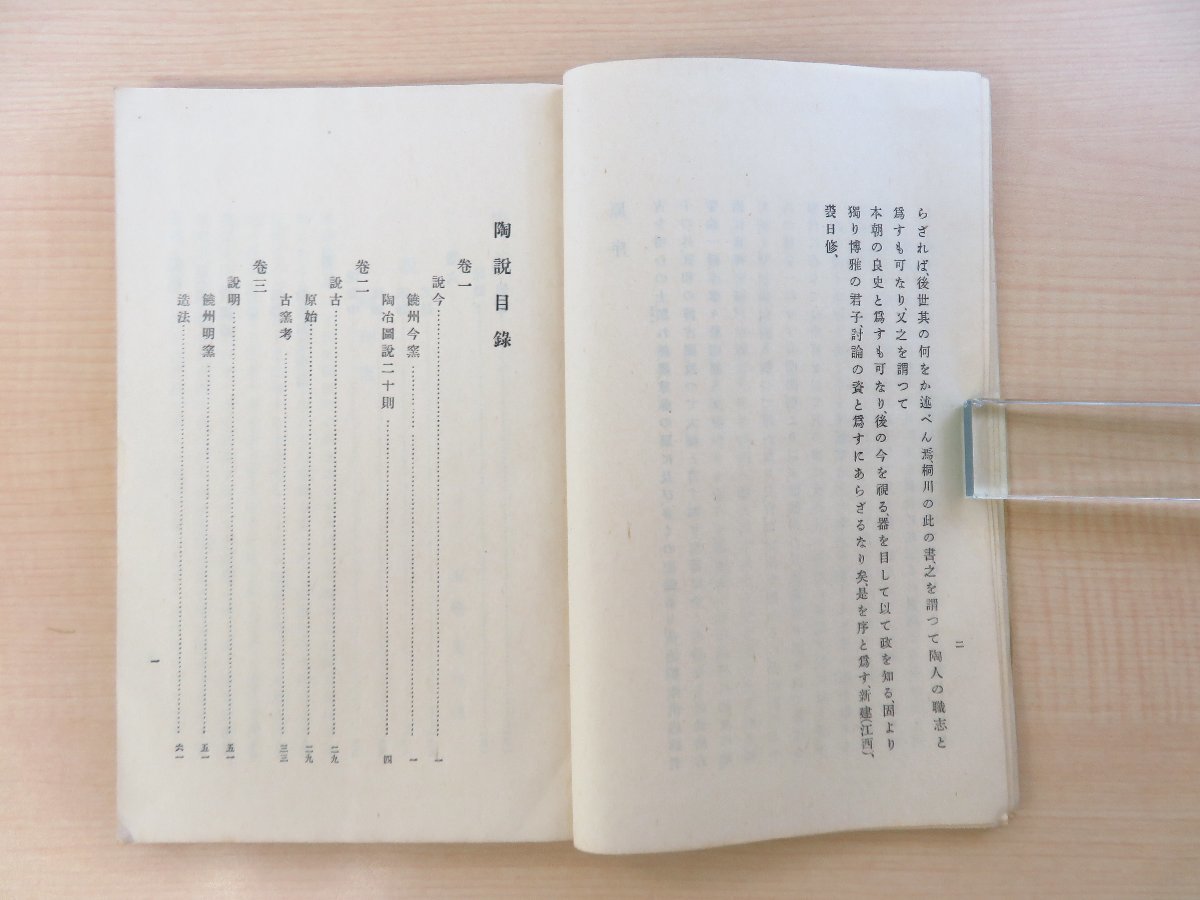 らざれば、後世其の何をか述べん焉、桐川の此の書、之を謂つて陶人の職志と
爲すも可なり、又之を謂つて
本朝の良史と爲すも可なり、後の今を視る、器を目して以て政を知る、固より
獨り博雅の君子、討論の資と爲すにあらざるなり矣、是を序と爲す、新建(江西)、
裘日修、
二
陶說目錄
卷一
說今……一
饒州今窯……一
陶冶圖說二十則……四
卷二
說古……二九
原始……二九
古窯考……三三
卷三
說明……五一
饒州明窯……五一
造法……六一
一